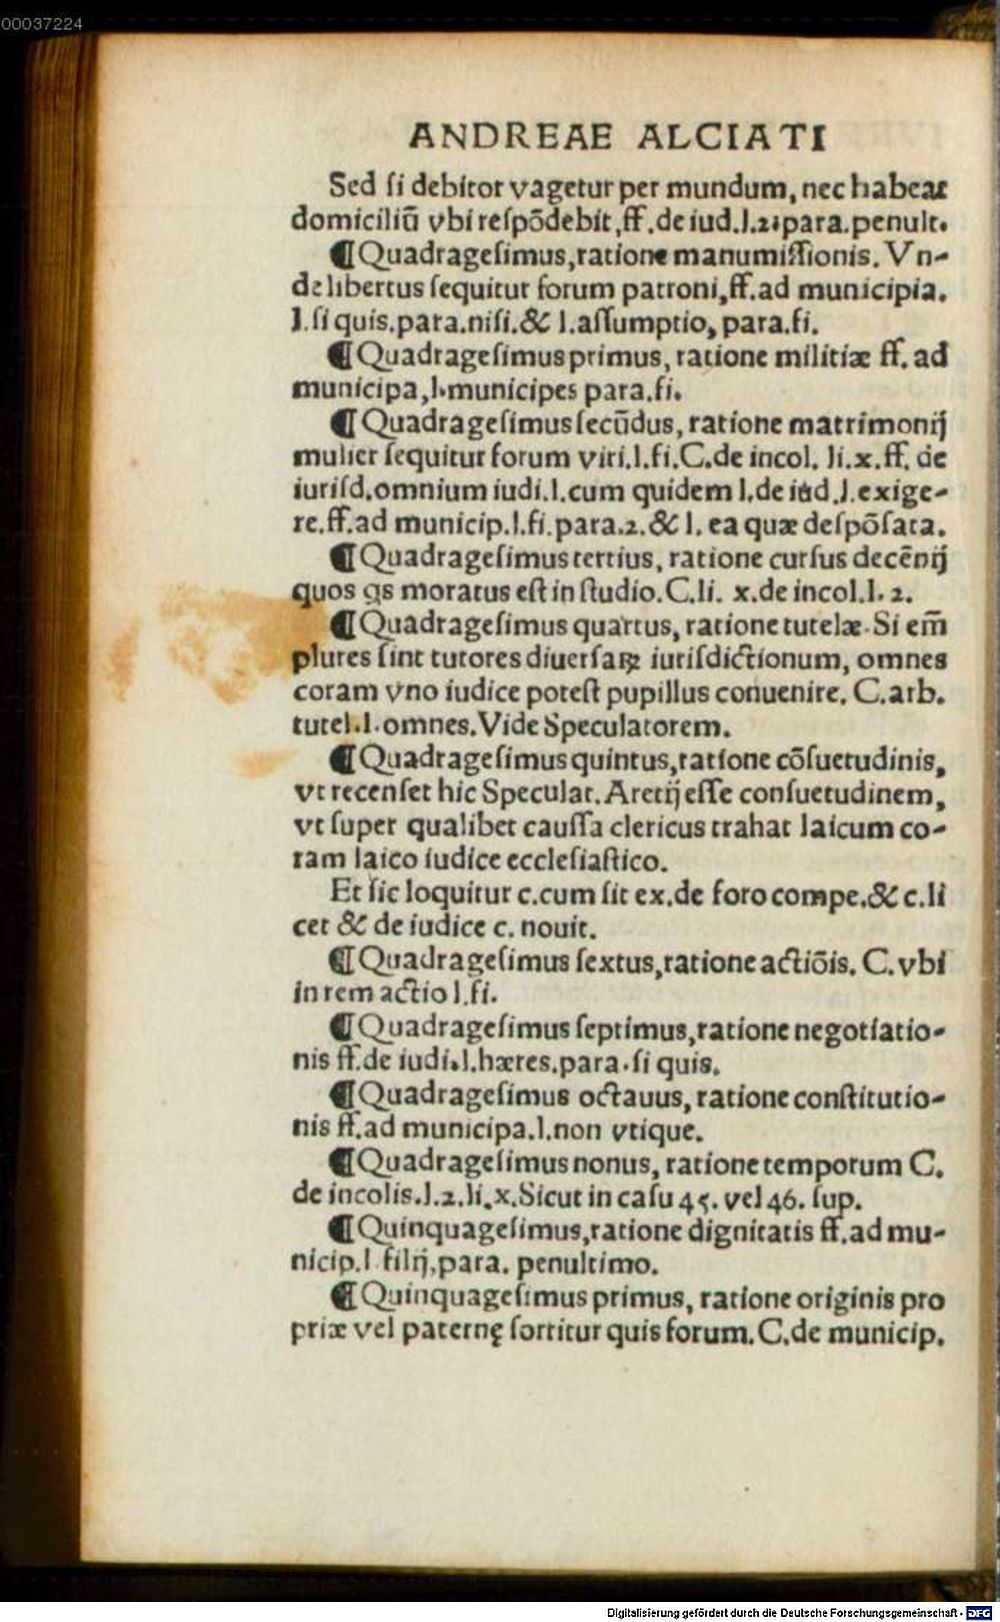 00037224
ANDREAE ALCIATI
Sed ſi debitor vagetur per mundum, nec habeat
domiciliū vbi reſpōdebit, ff. de iud. l. 2. para. penult.
¶ Quadrageſimus, ratione manumiſſionis. Vn-
de libertus ſequitur forum patroni, ff. ad municipia.
l. ſi quis. para. niſi. & l. aſſumptio, para. fi.
¶ Quadrageſimus primus, ratione militiæ ff. ad
municipa, l. municipes para. fi.
¶ Quadrageſimus ſecūdus, ratione matrimonij
mulier ſequitur forum viri. l. fi. C. de incol. li. x. ff. de
iuriſd. omnium iudi. l. cum quidem l. de iud. l. exige-
re. ff. ad municip. l. fi. para. 2. & l. ea quæ deſpōſata.
¶ Quadrageſimus tertius, ratione curſus decēnij
quos qs moratus eſt in ſtudio. C. li. x. de incol. l. 2.
¶ Quadrageſimus quartus, ratione tutelæ. Si em̄
plures ſint tutores diuerſaꝝ iuriſdictionum, omnes
coram vno iudice poteſt pupillus conuenire. C. arb.
tutel. l. omnes. Vide Speculatorem.
¶ Quadrageſimus quintus, ratione cōſuetudinis,
vt recenſet hic Speculat. Aretij eſſe conſuetudinem,
vt ſuper qualibet cauſſa clericus trahat laicum co-
ram laico iudice eccleſiaſtico.
Et ſic loquitur c. cum ſit ex. de foro compe. & c. li
cet & de iudice c. nouit.
¶ Quadrageſimus ſextus, ratione actiōis. C. vbi
in rem actio l. fi.
¶ Quadrageſimus ſeptimus, ratione negotiatio-
nis ff. de iudi. l. hæres. para. ſi quis.
¶ Quadrageſimus octauus, ratione conſtitutio-
nis ff. ad municipa. l. non vtique.
¶ Quadrageſimus nonus, ratione temporum C.
de incolis. l. 2. li. x. Sicut in caſu 45. vel 46. ſup.
¶ Quinquageſimus, ratione dignitatis ff. ad mu-
nicip. l filij, para. penultimo.
¶ Quinquageſimus primus, ratione originis pro
priæ vel paternę ſortitur quis forum. C. de municip.
Digitalisierung gefördert durch die Deutsche Forschungsgemeinschaft - DFG